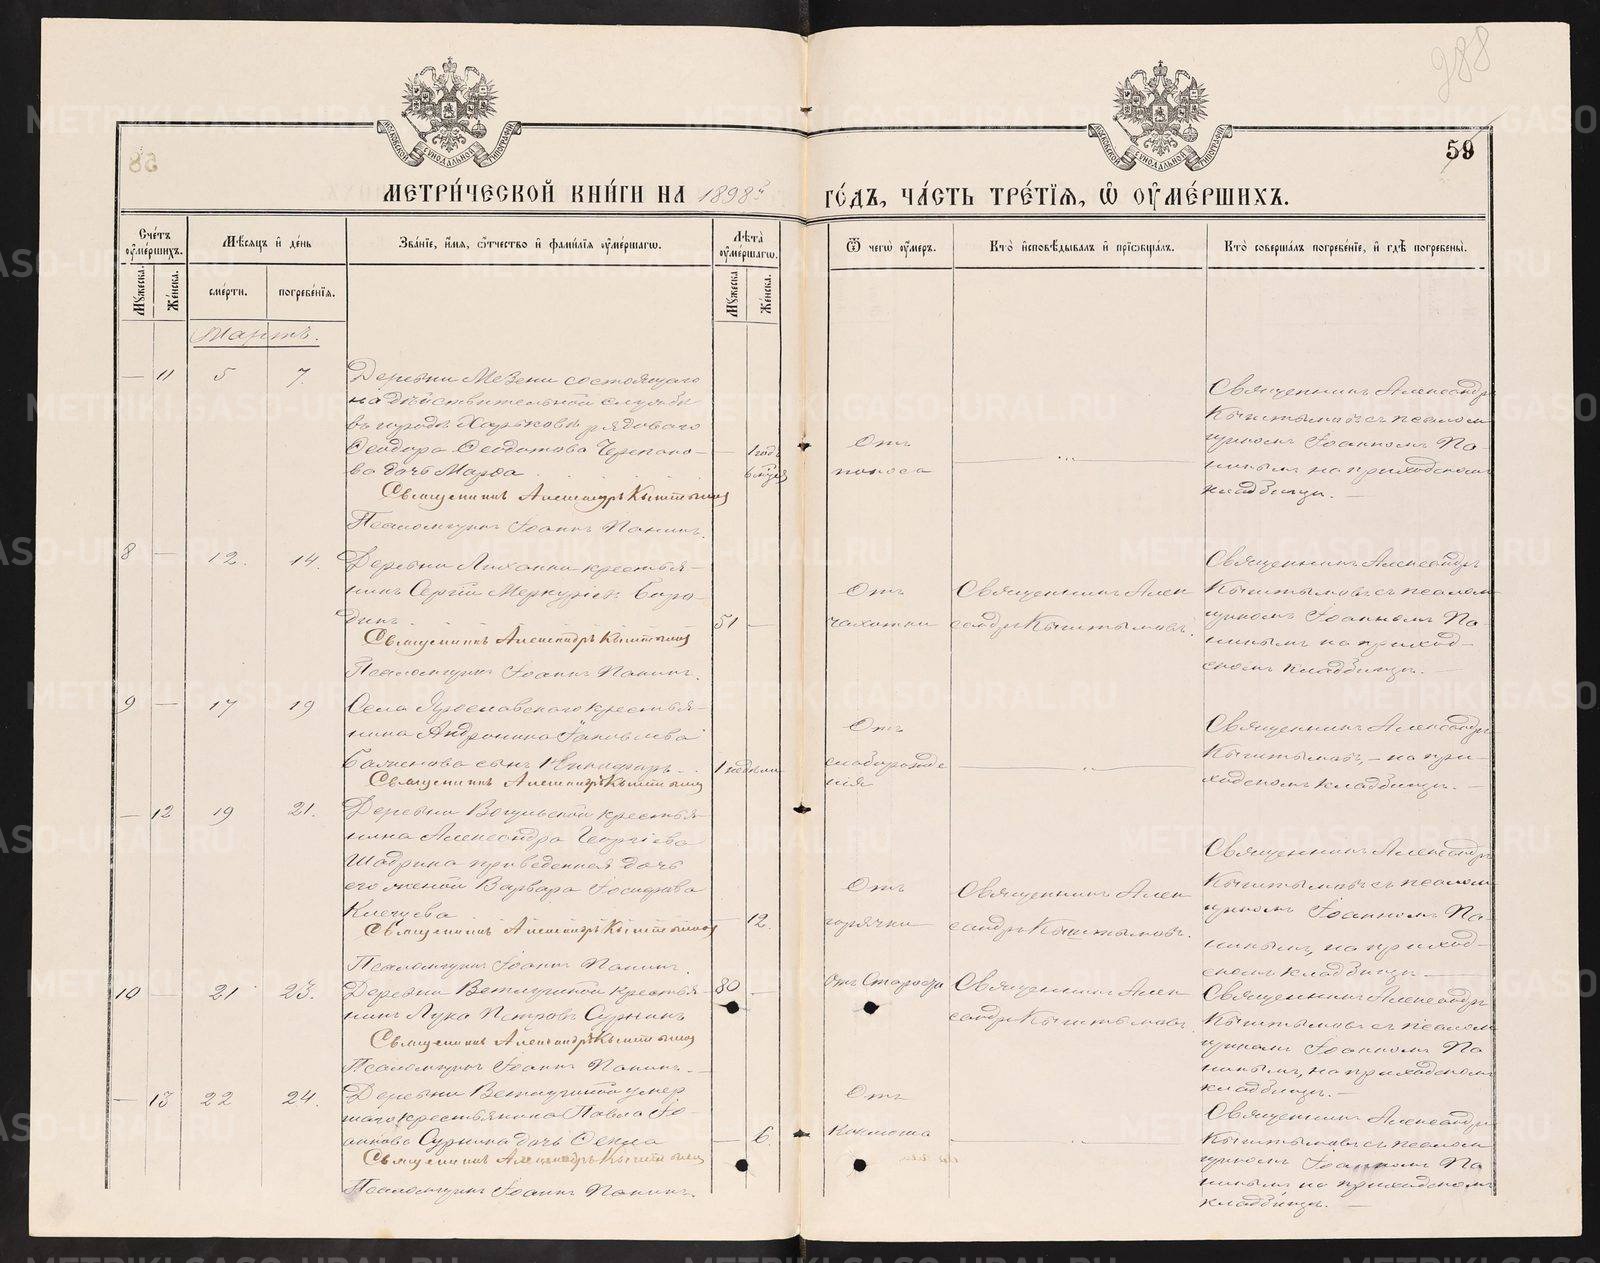 288
59
МЕТРИ́ЧЕСКОЙ КНИ́ГИ НА 1898й ГО́ДЪ, ЧА́СТЬ ТРЕ́ТІЯ, Ѡ҆ ОУ҆МЕ́РШИХЪ.
Сче́тъ оу҆ме́ршихъ.
Мѣ́сяцъ и҆ де́нь
Зва́ніе, и҆́мя, ѻ҆́тчество и҆ фами́лія оу҆ме́ршагѡ.
Лѣ́та оу҆ме́ршагѡ.
Ѿ чегѡ̀ оу҆́меръ.
Кто̀ и҆сповѣ́дывалъ и҆ прїѡбща́лъ.
Кто̀ соверша́лъ погребе́ніе, и҆ гдѣ̀ погребены̀.
Мꙋ́жеска.
Же́нска.
сме́рти.
погребе́нїя.
Мꙋ́жеска.
Же́нска.
Мартъ.
— 11 5 7.
Деревни Мезени состоящаго
на дѣйствительной службѣ
въ городѣ Харьковѣ рядоваго
Ѳеодора Ѳеодотова Черпако-
ва дочь Марѳа
Священникъ Александръ Кыштымовъ
Псаломщикъ Іоаннъ Панинъ.
— 1 годъ
Отъ
поноса
Священникъ Александръ
Кыштымовъ съ псалом
щикомъ Іоанномъ Па-
нинымъ на приходскомъ
кладбищѣ. —
8 — 12. 14.
Деревни крестья-
нинъ Сергій Меркурьевъ Боро
динъ.
Священникъ Александръ Кыштымовъ
Псаломщикъ Іоаннъ Панинъ.
51 —
Отъ
чахотки
Священникъ Алек
сандръ Кыштымовъ.
Священникъ Александръ
Кыштымовъ съ псалом
щикомъ Іоанномъ Па-
нинымъ на приход-
скомъ кладбищѣ. —
9 — 17 19
Села Ярославскаго крестья-
нина Андроника Іаковлева
сынъ Никифоръ
Священникъ Александръ Кыштымовъ
1 недѣли
Отъ
слаборожде
нія
Священникъ Александръ
Кыштымовъ, — на при-
ходскомъ кладбищѣ. —
— 12 19 21.
Деревни Вогульской крестья-
нина Александра Георгіева
Шадрина приведенная дочь
его женой Варвара Іосифова
Клещева
Священникъ Александръ Кыштымовъ
Псаломщикъ Іоаннъ Панинъ.
— 12.
Отъ
горячки
Священникъ Алек
сандръ Кыштымовъ.
Священникъ Александръ
Кыштымовъ съ псалом
щикомъ Іоанномъ Па-
нинымъ, на приход-
скомъ кладбищѣ —
10 — 21 23.
Деревни Ветлугиной крестья-
нинъ Лука Петровъ Суркинъ
Священникъ Александръ Кыштымовъ
Псаломщикъ Іоаннъ Панинъ. —
80 —
Отъ Старости
Священникъ Алек
сандръ Кыштымовъ.
Священникъ Александръ
Кыштымовъ съ псалом
щикомъ Іоанномъ Па
нинымъ, на приходскомъ
кладбищѣ. —
— 13 22 24.
Деревни Ветлугиной умер
шаго крестьянина Павла Іо-
аннова Суркина дочь Ѳекла
Священникъ Александръ Кыштымовъ
Псаломщикъ Іоаннъ Панинъ.
— 6
Отъ
Коклюша
Священникъ Александръ
Кыштымовъ съ псалом
щикомъ Іоанномъ Па
нинымъ на приходскомъ
кладбищѣ. —
METRIKI.GASO-URAL.RU